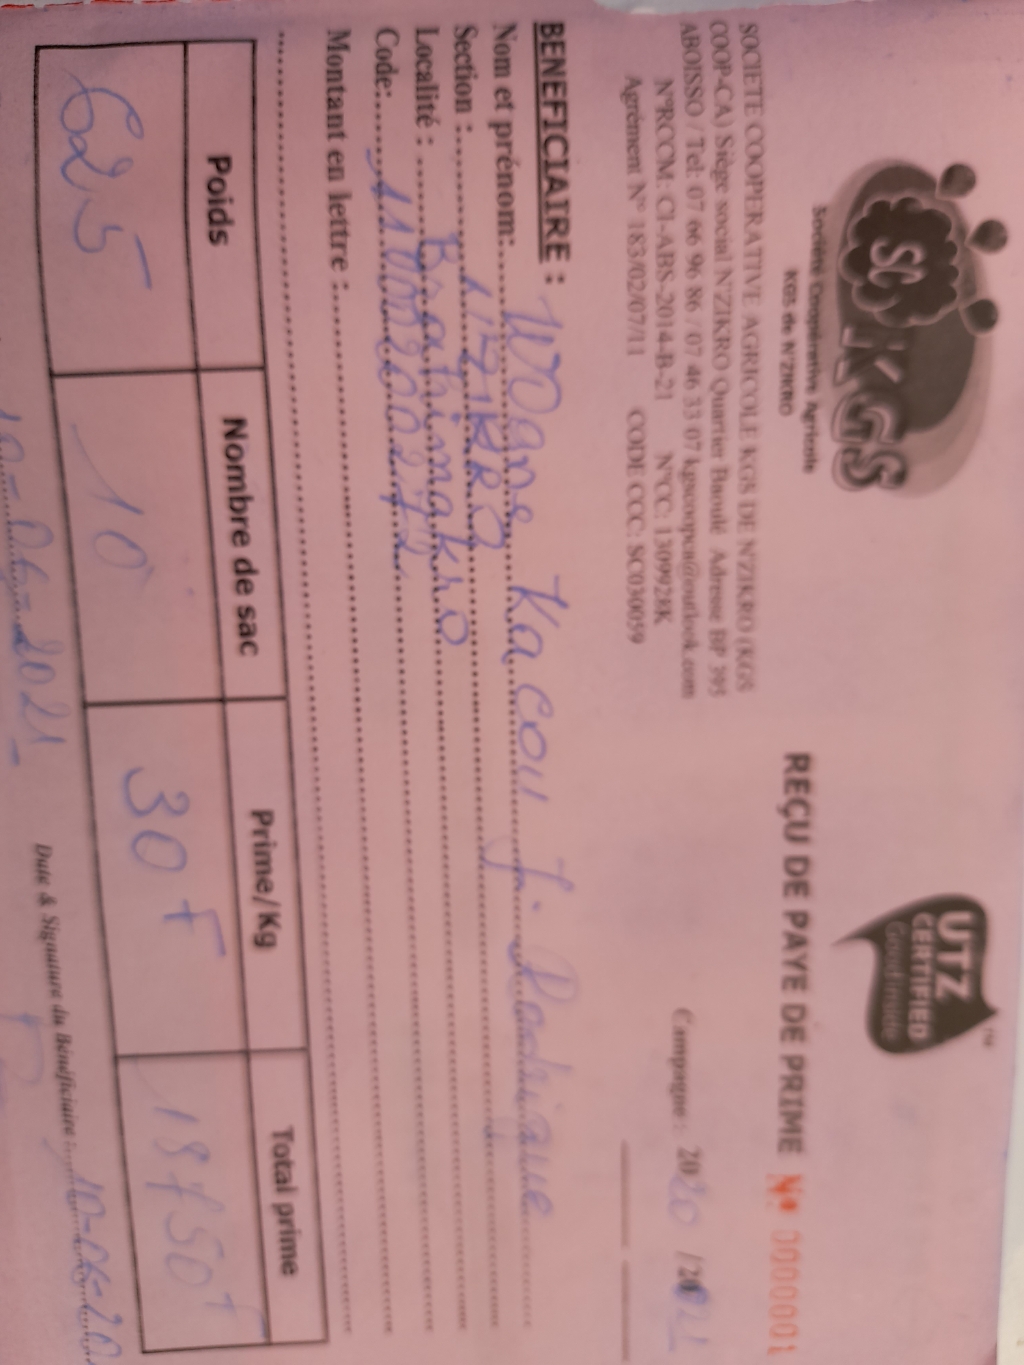 SC KGS
Société Coopérative Agricole
KGS de N'ZIKRO
UTZ
CERTIFIED
Good inside
SOCIETE COOPERATIVE AGRICOLE KGS DE N'ZIKRO (KGS
COOP-CA) Siège social N'ZIKRO Quartier Baoulé Adresse BP 395
ABOISSO / Tel: 07 66 96 86 / 07 46 33 07 kgscoopca@outlook.com
N°RCCM: CI-ABS-2014-B-21 N°CC: 1309928K
Agrément N° 183/02/07/11 CODE CCC: SC030059
REÇU DE PAYE DE PRIME N° 0000001
Campagne : 2020 /2021
BENEFICIAIRE :
Nom et prénom: Kacou J. Rodrigue
Section : N'ZIKRO
Localité :
Code:
Montant en lettre :
Poids Nombre de sac Prime/Kg Total prime
625 10 30 F 18750 F
10-06-2021
Date & Signature du Bénéficiaire : 10-06-20